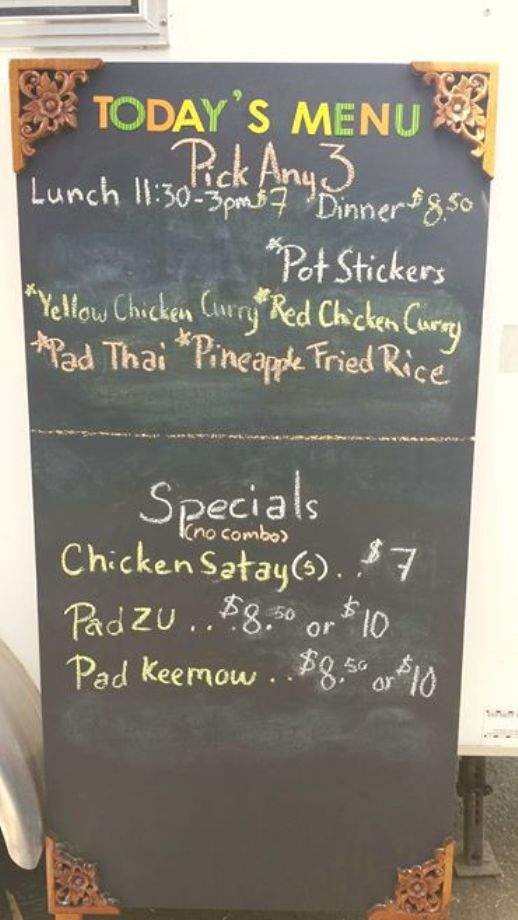 TODAY'S MENU
Pick Any 3
Lunch 11:30-3pm $7 Dinner $8.50
*Pot Stickers
*Yellow Chicken Curry *Red Chicken Curry
*Pad Thai *Pineapple Fried Rice
Specials
(no combo)
Chicken Satay(s)..$7
Pad ZU ..$8.50 or $10
Pad Keemow ..$8.50 or $10